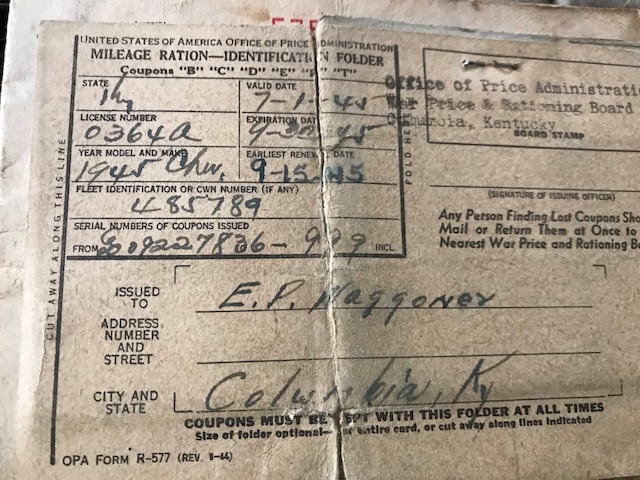 UNITED STATES OF AMERICA OFFICE OF PRICE ADMINISTRATION
MILEAGE RATION—IDENTIFICATION FOLDER
Coupons "B" "C" "D" "E" "R" "T"
STATE
Ky
VALID DATE
7-1-45
LICENSE NUMBER
0364A
EXPIRATION DATE
9-30-45
YEAR MODEL AND MAKE
1945 Chev.
EARLIEST RENEWAL DATE
9-15-45
FLEET IDENTIFICATION OR CWN NUMBER (IF ANY)
485789
SERIAL NUMBERS OF COUPONS ISSUED
FROM 999 INCL.
CUT AWAY ALONG THIS LINE
FOLD HE
Office of Price Administrati
War Price & Rationing Board
Columbia, Kentucky
BOARD STAMP
(SIGNATURE OF ISSUING OFFICER)
Any Person Finding Lost Coupons Sho
Mail or Return Them at Once to
Nearest War Price and Rationing Bo
ISSUED TO E. P. Waggoner
ADDRESS NUMBER AND STREET
CITY AND STATE Columbia, Ky
COUPONS MUST BE KEPT WITH THIS FOLDER AT ALL TIMES
Size of folder optional— entire card, or cut away along lines indicated
OPA FORM R-577 (REV. 8-44)